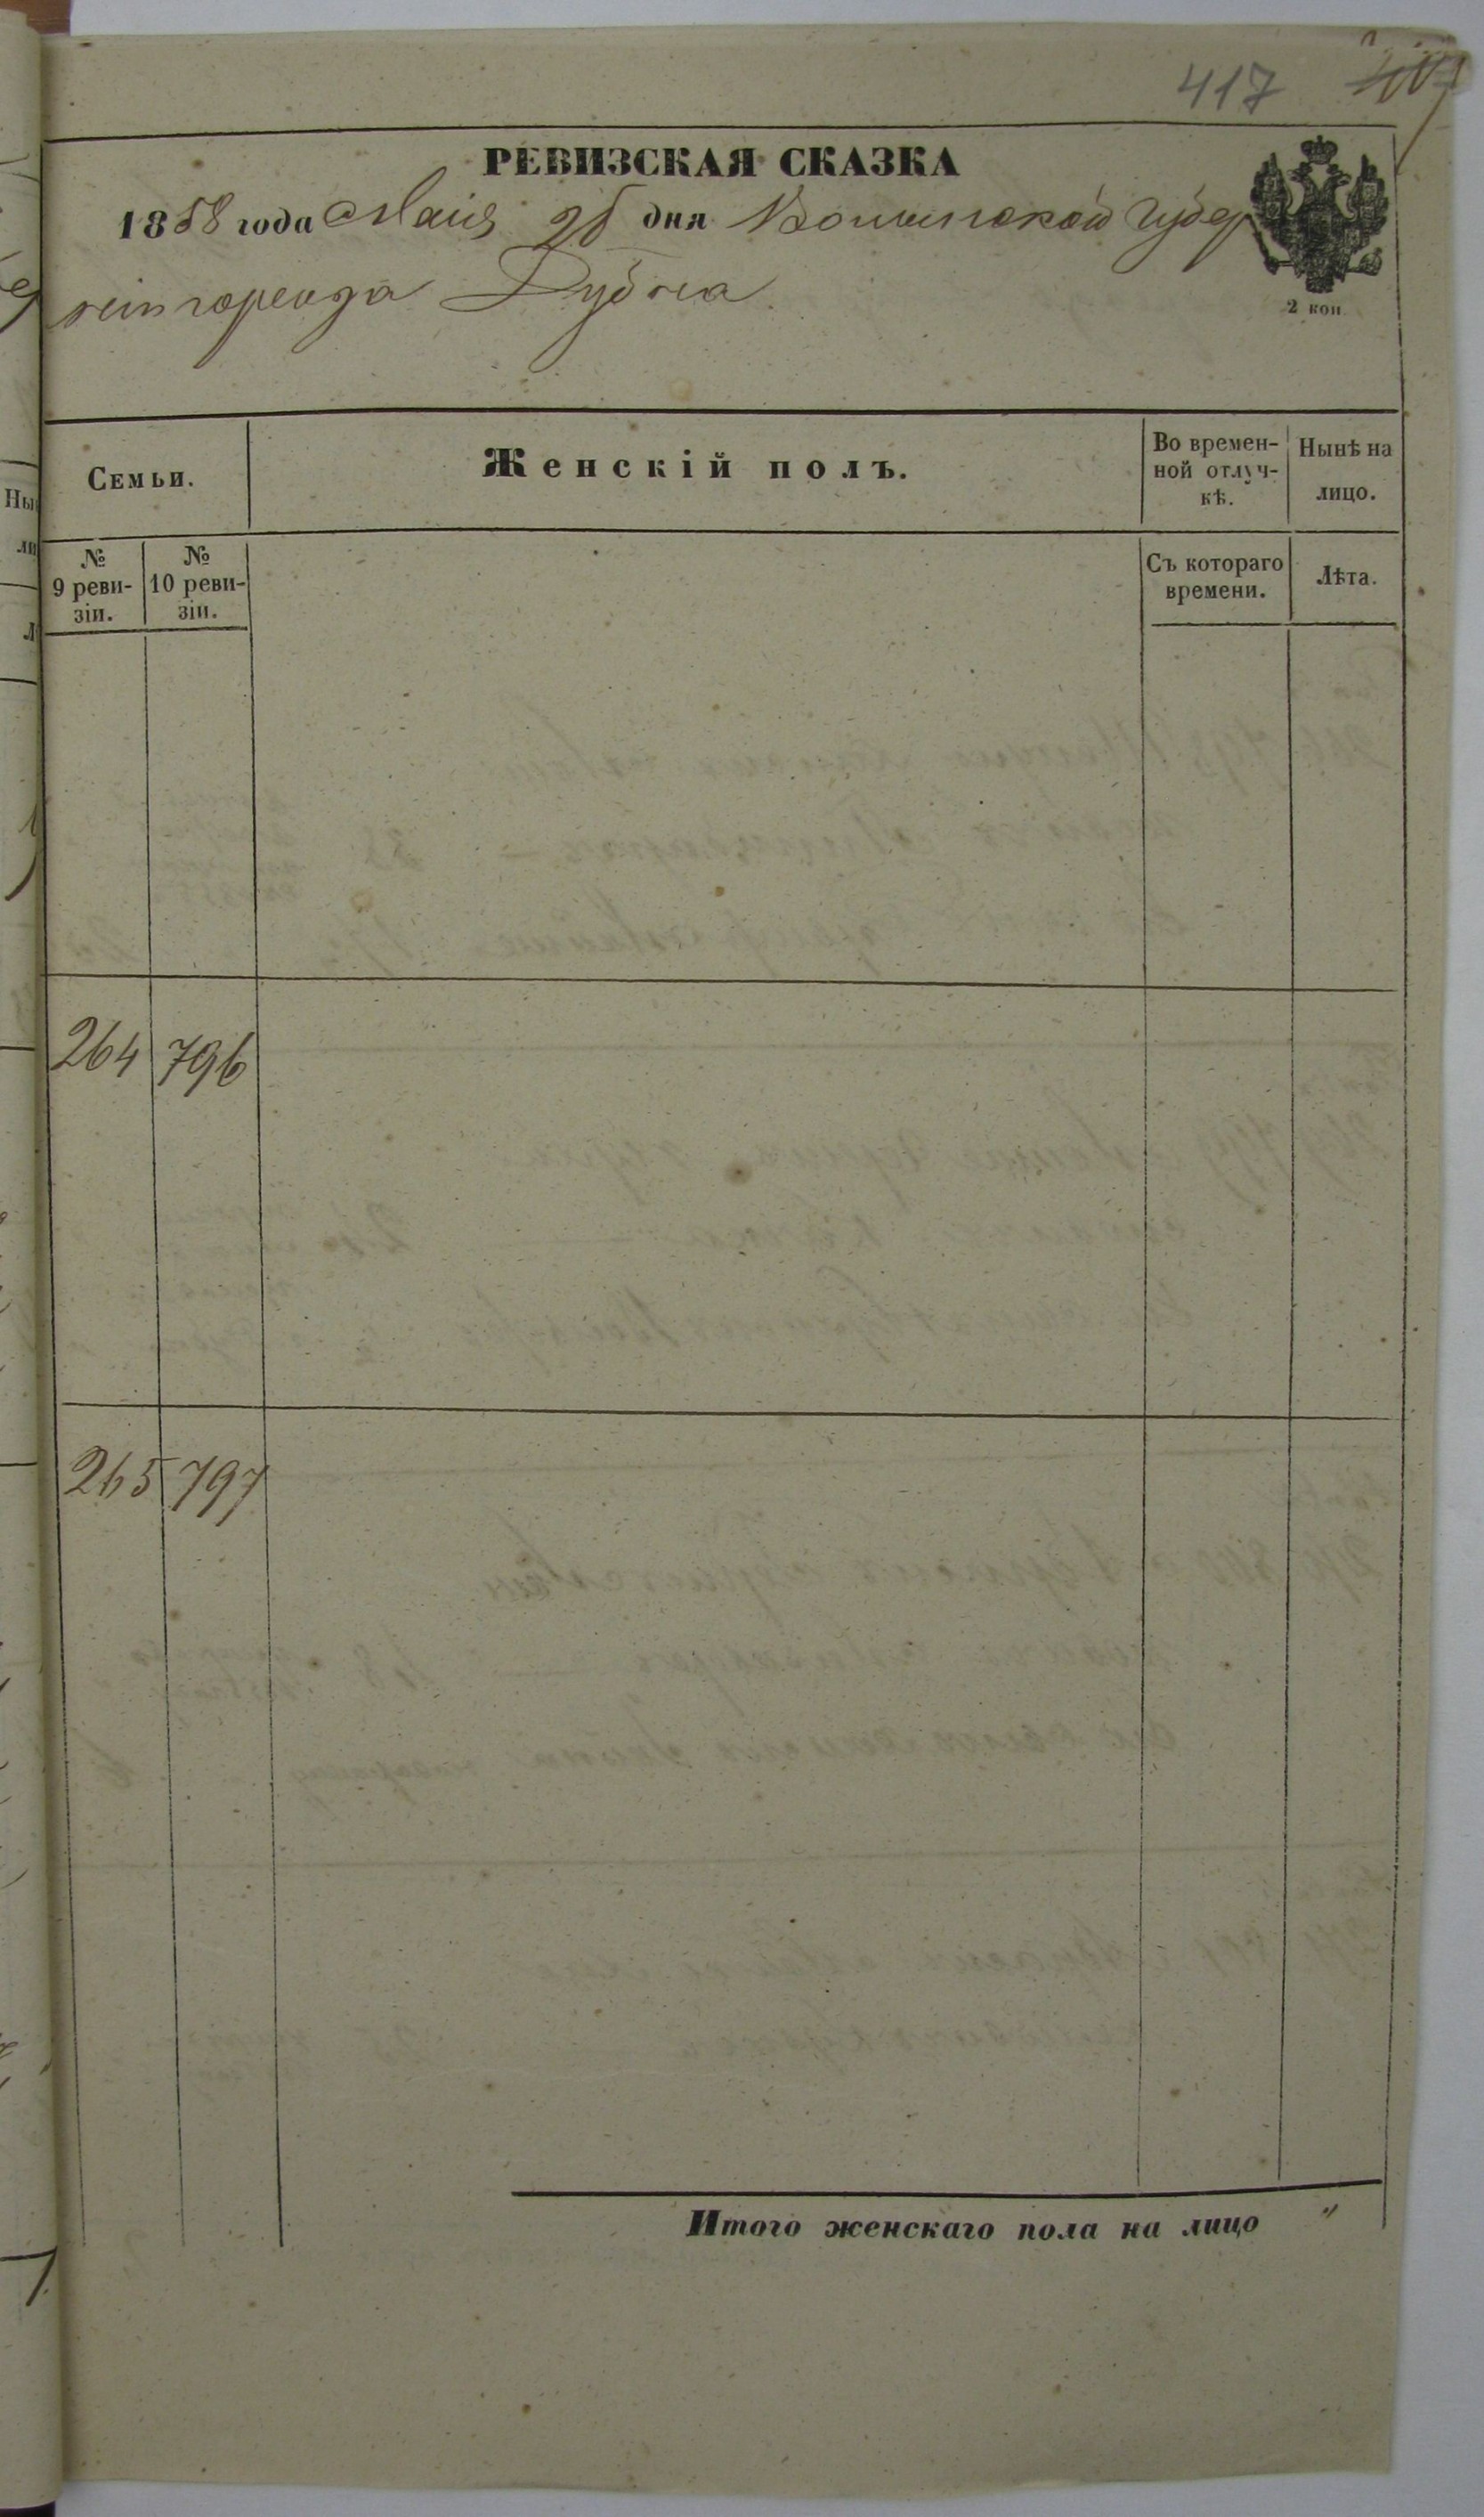 417
РЕВИЗСКАЯ СКАЗКА
1858 года Маія 26 дня Волынской Губер
ніи города Дубна
2 коп
Семьи.
Женскій полъ.
Во времен-
ной отлуч-
кѣ.
Нынѣ на
лицо.
№
9 реви-
зіи.
№
10 реви-
зіи.
Съ котораго
времени.
Лѣта.
264 796
265 797
Итого женскаго пола на лицо "